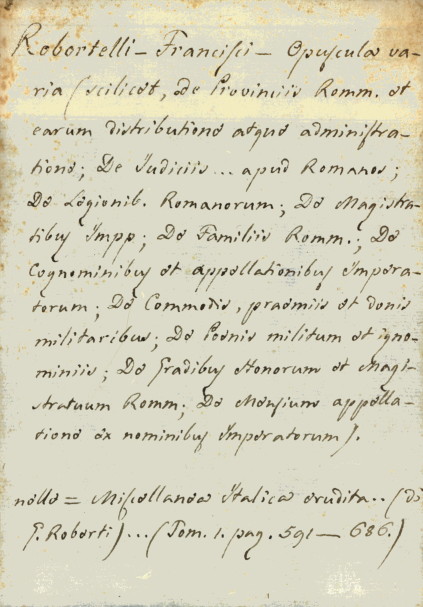 Robortelli - Francisci - Opuscula va-
ria (scilicet, De Provinciis Romm. et
earum distributione atque administra-
tione; De Judiciis... apud Romanos;
De Legionib. Romanorum; De Magistra-
tibus Impp; De Familiis Romm.; De
Cognominibus et appellationibus Impera-
torum; De Commodis, praemiis et donis
militaribus; De Poenis militum et igno-
miniis; De Gradibus Honorum et Magi-
stratuum Romm; De Mensium appella-
tione ex nominibus Imperatorum).
nelle = Miscellanea Italica erudita.. (di
G. Roberti)... (Tom. 1. pag. 591 — 686.)